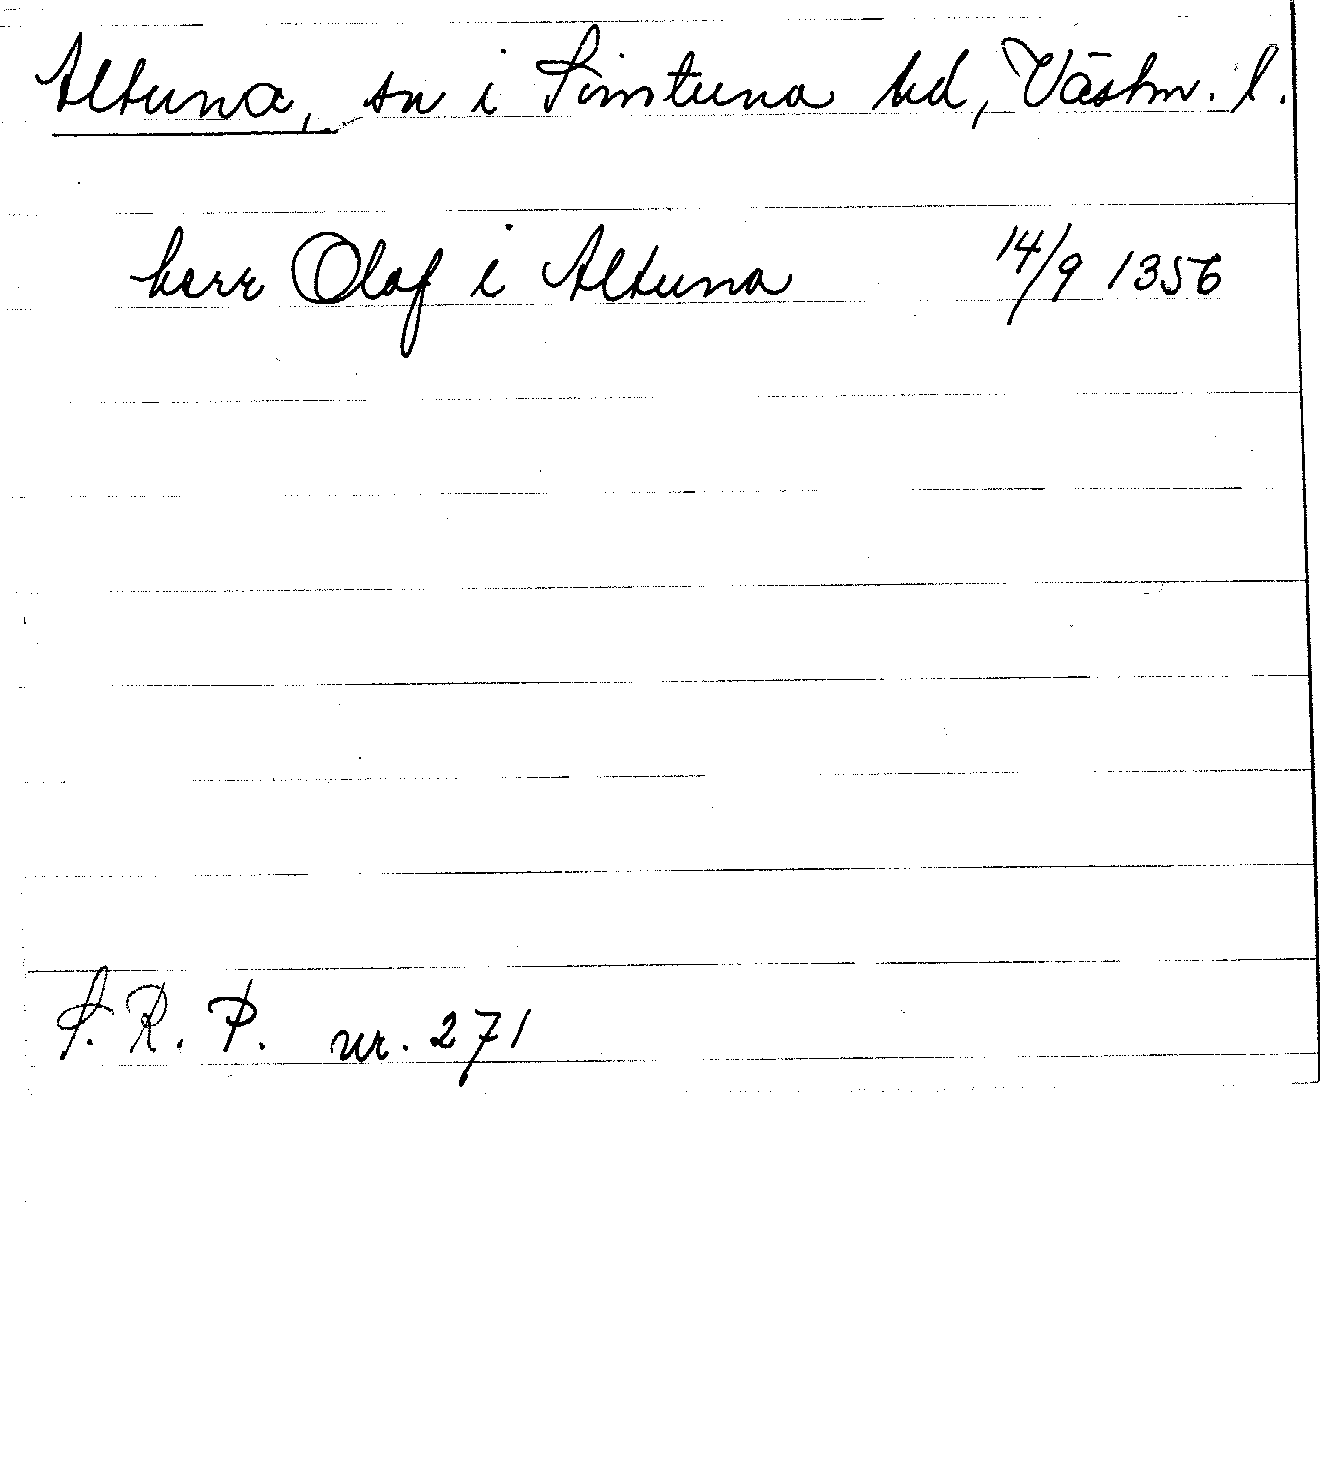 Altuna, sn i Simtuna hd, Västm. l.
herr Olaf i Altuna 14/9 1356
S. R. P. nr. 271